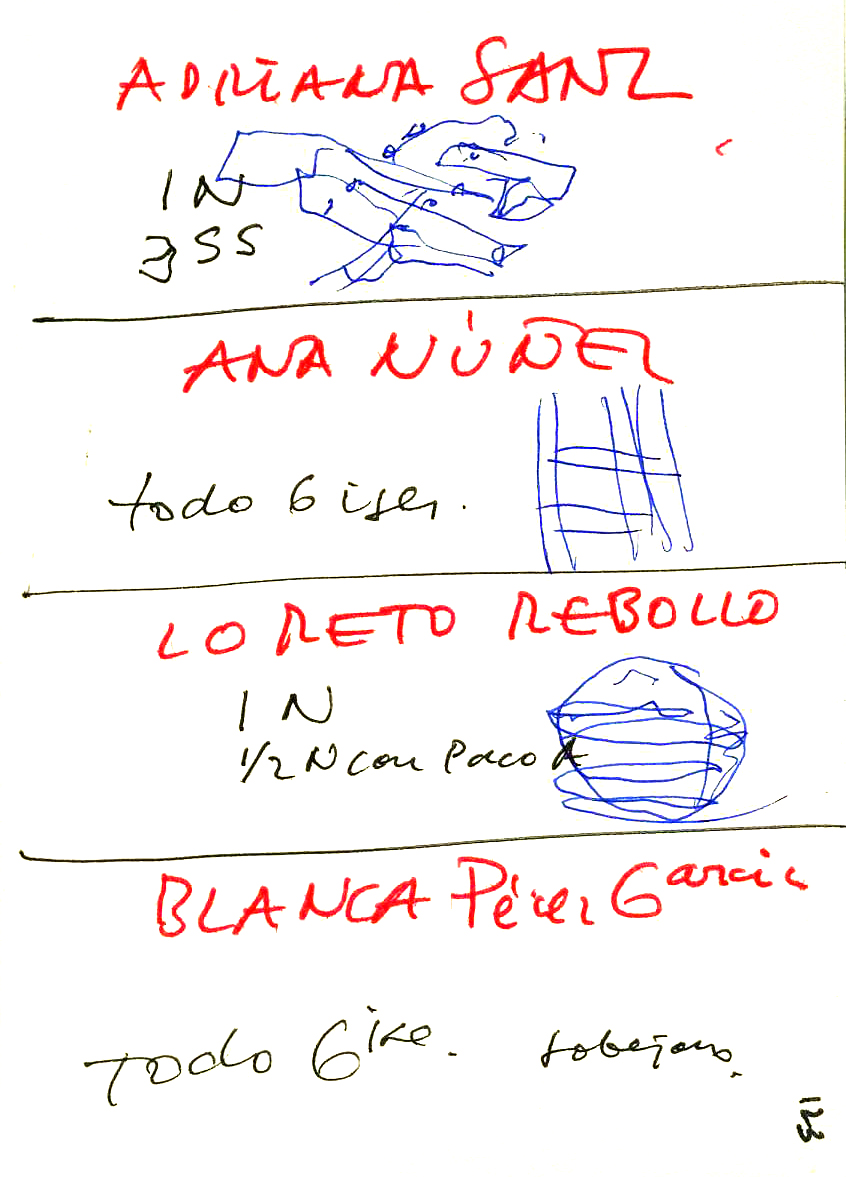 ADRIANA SANZ
1 N
3 SS
ANA NÚÑEZ
todo Giser.
LORETO REBOLLO
1 N
1/2 N con Paco A
BLANCA Pérez Garcia
Todo Gise. Sobejano.